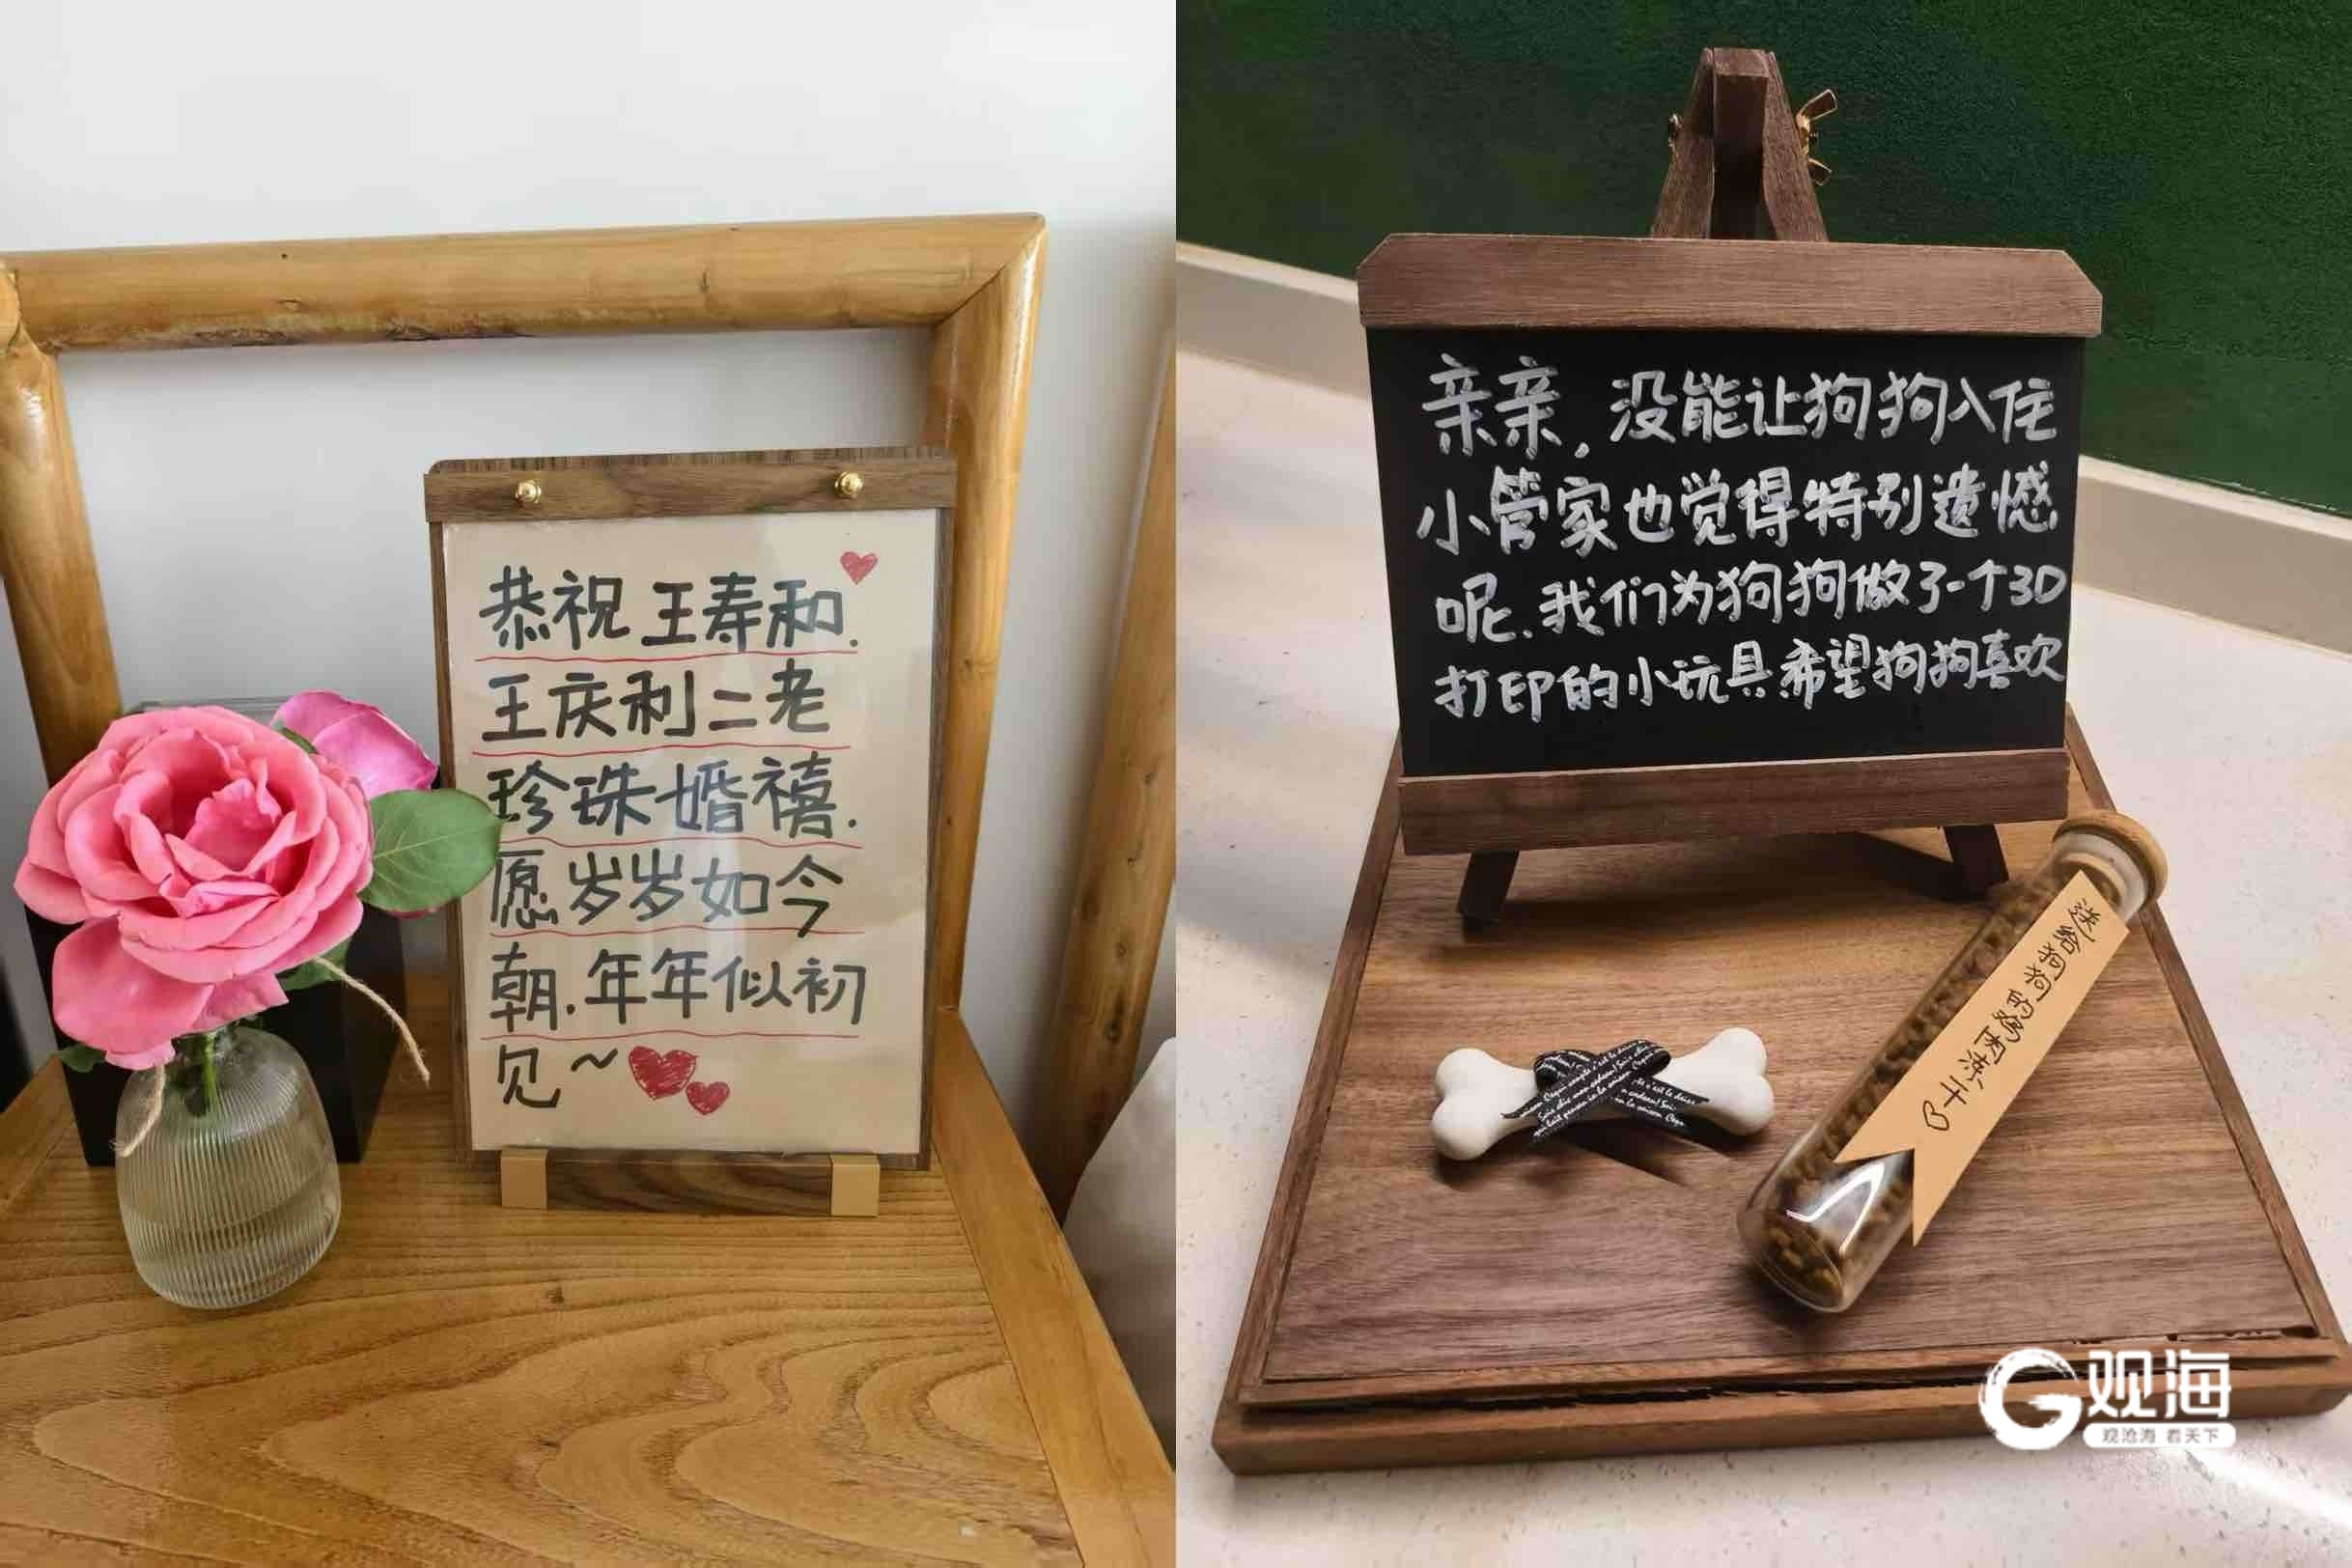 恭祝王寿和.
王庆利二老
珍珠婚禧.
愿岁岁如今
朝.年年似初
见~
亲亲,没能让狗狗入住
小管家也觉得特别遗憾
呢.我们为狗狗做了一个3D
打印的小玩具希望狗狗喜欢
送给狗狗的鸡肉冻干
观海
观沧海 看天下